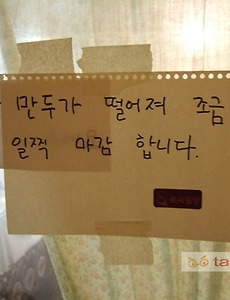 만두가 떨어져 조금
일찍 마감 합니다.
ta